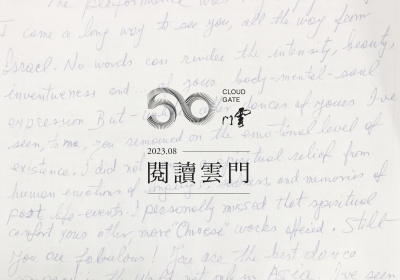 The performance was
I came a long way to see you, all the way from
Israel. No words can render the intensity, beauty,
inventiveness and of your body-mental-soul
expression But of yours I've
seen, to me, you remained on the emotional level of
existence. I did not relief from
human emotions of and memories of
past life-events. I personally missed that spiritual
comfort yours other more "Chinese" works offered. Still
You are fabulous! You are the best dance
in the not only in Asia. I've seen
CLOUD
GATE
雲門
2023.08
閱讀雲門